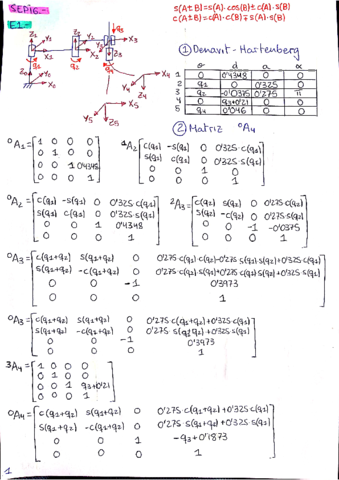 SEP16.-
E1.-
s(A±B)=s(A)·cos(B)±c(A)·s(B)
c(A±B)=c(A)·c(B)∓s(A)·s(B)
① Denavit-Hartenberg
θ d a α
1 0 0'4348 0 0
2 q1 0 0'325 0
3 q2 -0'0375 0'275 π
4 0 q3+0'21 0 0
5 q4 0'046 0 0
② Matriz ⁰A₄
⁰A₁ = [1 0 0 0
0 1 0 0
0 0 1 0'4348
0 0 0 1]
¹A₂ [c(q1) -s(q1) 0 0'325 c(q1)
s(q1) c(q1) 0 0'325·s(q1)
0 0 1 0
0 0 0 1]
⁰A₂ = [c(q1) -s(q1) 0 0'325 c(q1)
s(q1) c(q1) 0 0'325 s(q1)
0 0 1 0'4348
0 0 0 1]
²A₃ = [c(q2) s(q2) 0 0'275 c(q2)
s(q2) -c(q2) 0 0'275 s(q2)
0 0 -1 -0'0375
0 0 0 1]
⁰A₃ = [c(q1+q2) s(q1+q2) 0 0'275 c(q1)·c(q2)-0'275 s(q1)s(q2)+0'325 c(q1)
s(q1+q2) -c(q1+q2) 0 0'275 c(q2)·s(q1)+0'275 c(q1)s(q2)+0'325 s(q1)
0 0 -1 0'3973
0 0 0 1]
⁰A₃ = [c(q1+q2) s(q1+q2) 0 0'275 c(q1+q2)+0'325 c(q1)
s(q1+q2) -c(q1+q2) 0 0'275 s(q1+q2)+0'325 s(q1)
0 0 -1 0'3973
0 0 0 1]
³A₄ = [1 0 0 0
0 1 0 0
0 0 1 q3+0'21
0 0 0 1]
⁰A₄ = [c(q1+q2) s(q1+q2) 0 0'275 c(q1+q2)+0'325 c(q1)
s(q1+q2) -c(q1+q2) 0 0'275·s(q1+q2)+0'325 s(q1)
0 0 1 -q3+0'1873
0 0 0 1]
1